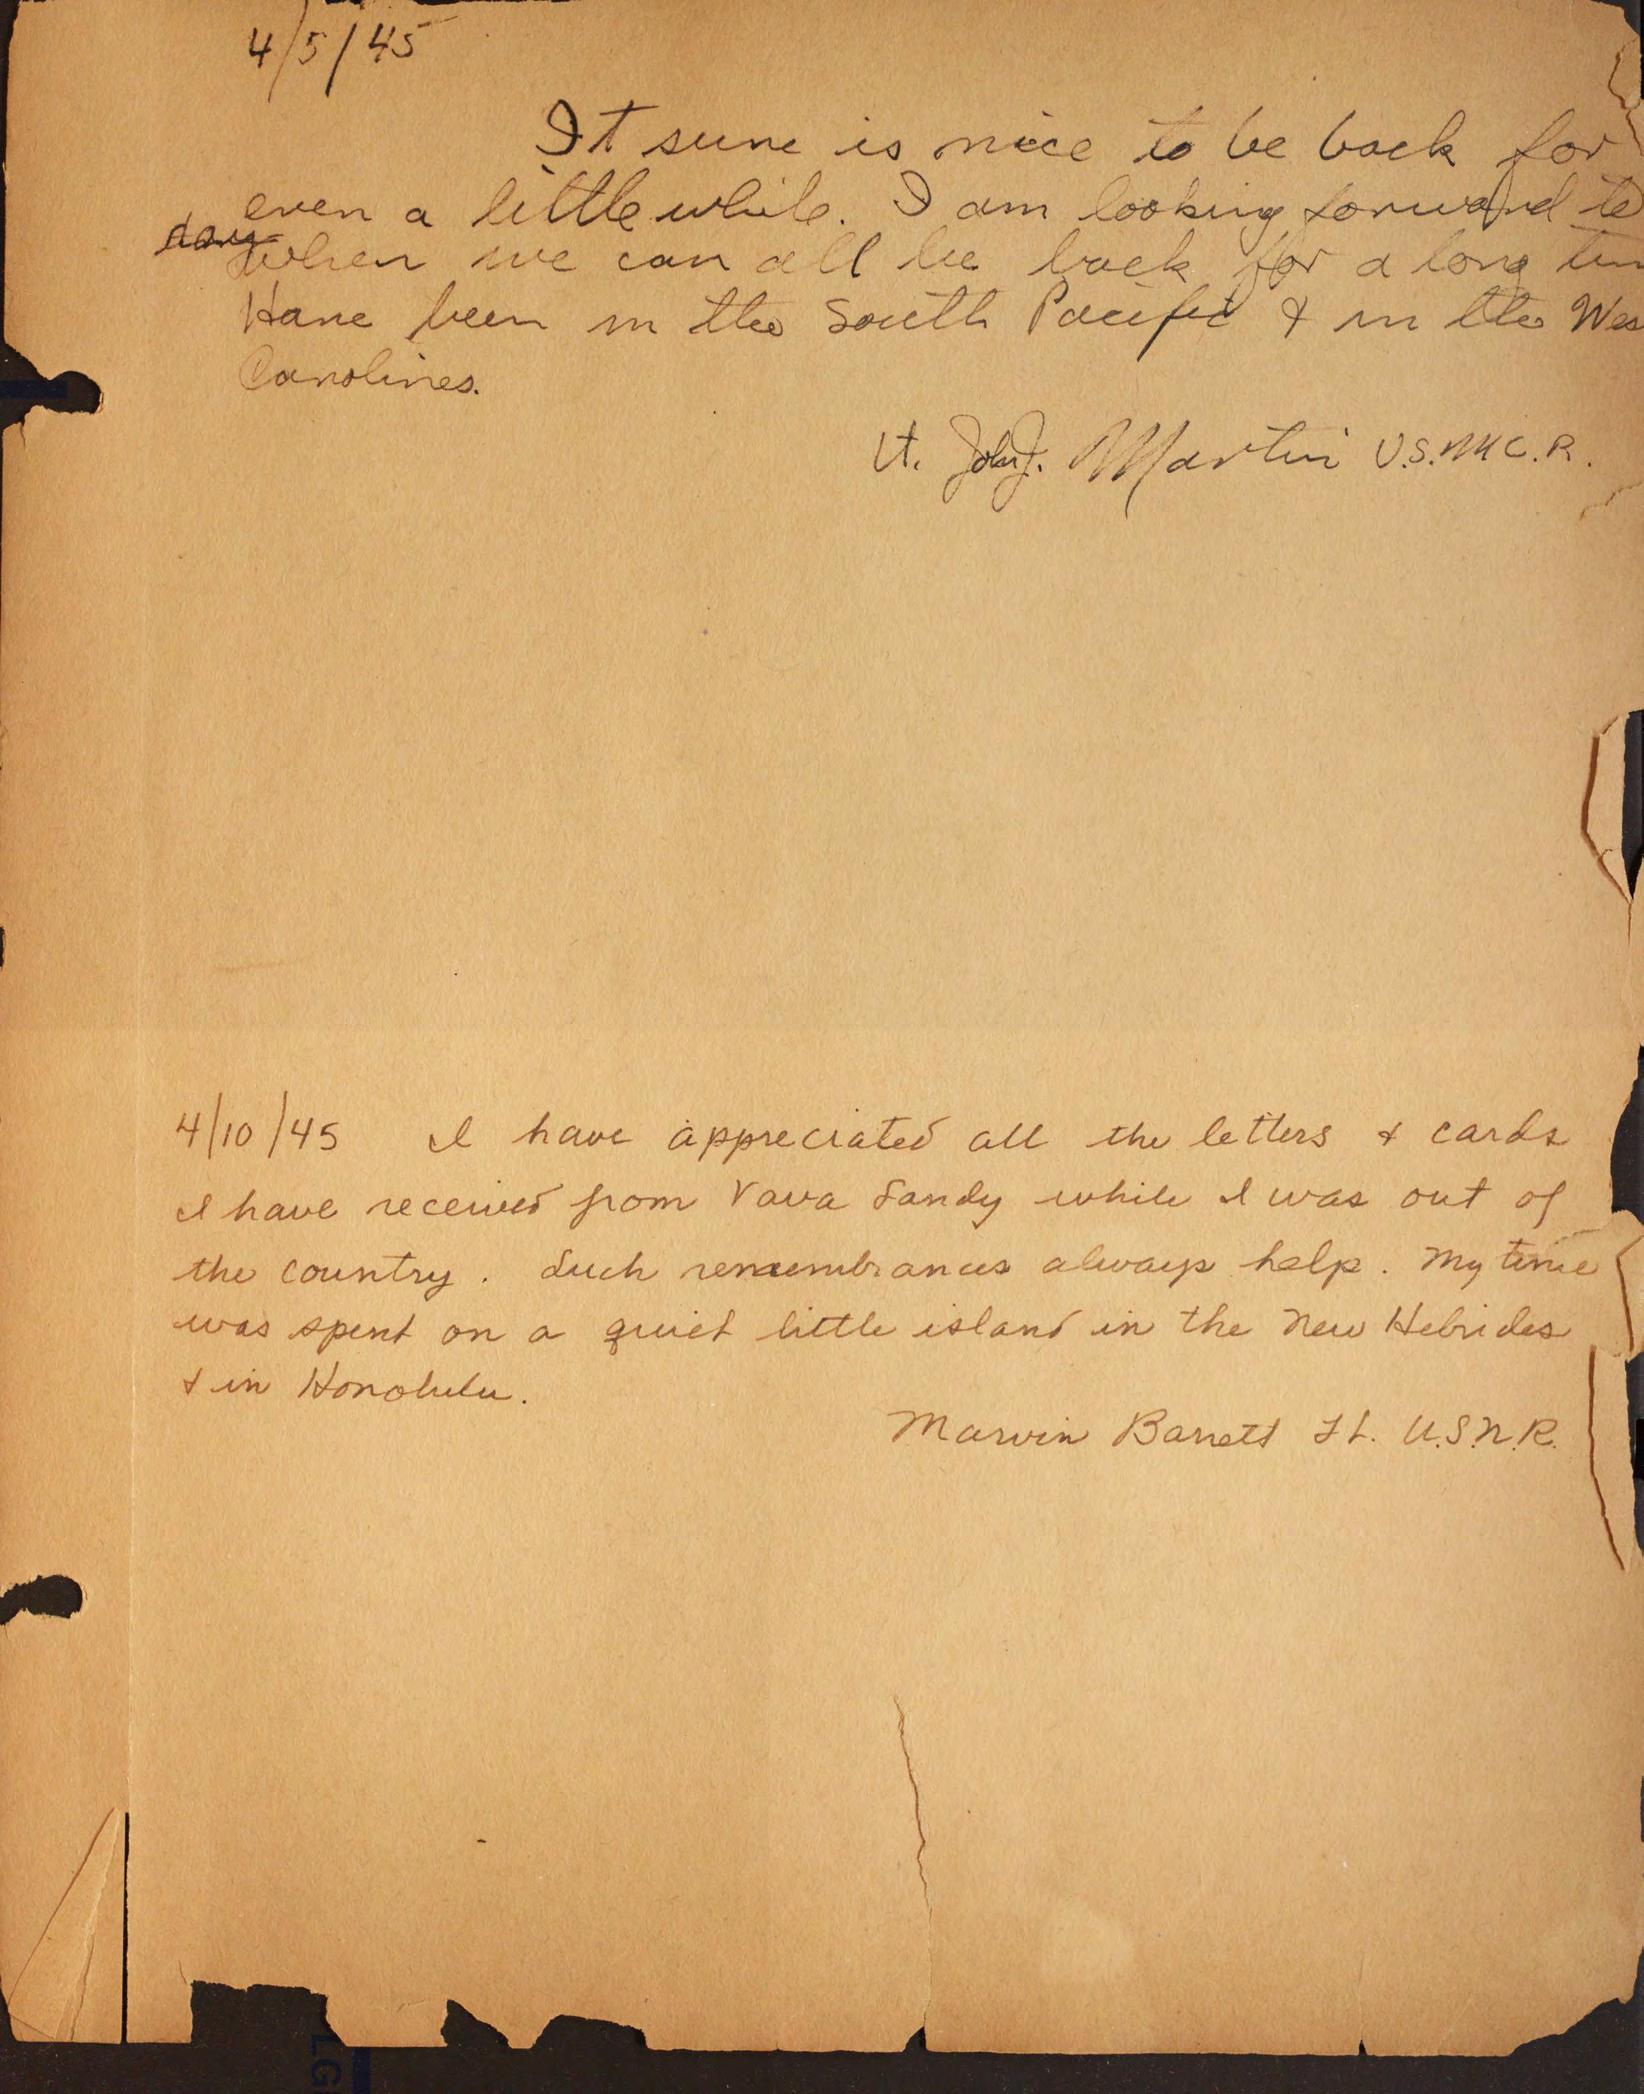 4/5/45
It sure is nice to be back for
even a little while. I am looking forward to
day when we can all be back for a long tim
Have been in the South Pacific & in the Wes
Carolines.
Lt. John J. Martin U.S.M.C.R.
4/10/45 I have appreciated all the letters & cards
I have received from Vava Sandy while I was out of
the country. Such remembrances always help. My time
was spent on a quiet little island in the New Hebrides
& in Honolulu.
Marvin Barrett Lt. U.S.N.R.
LG